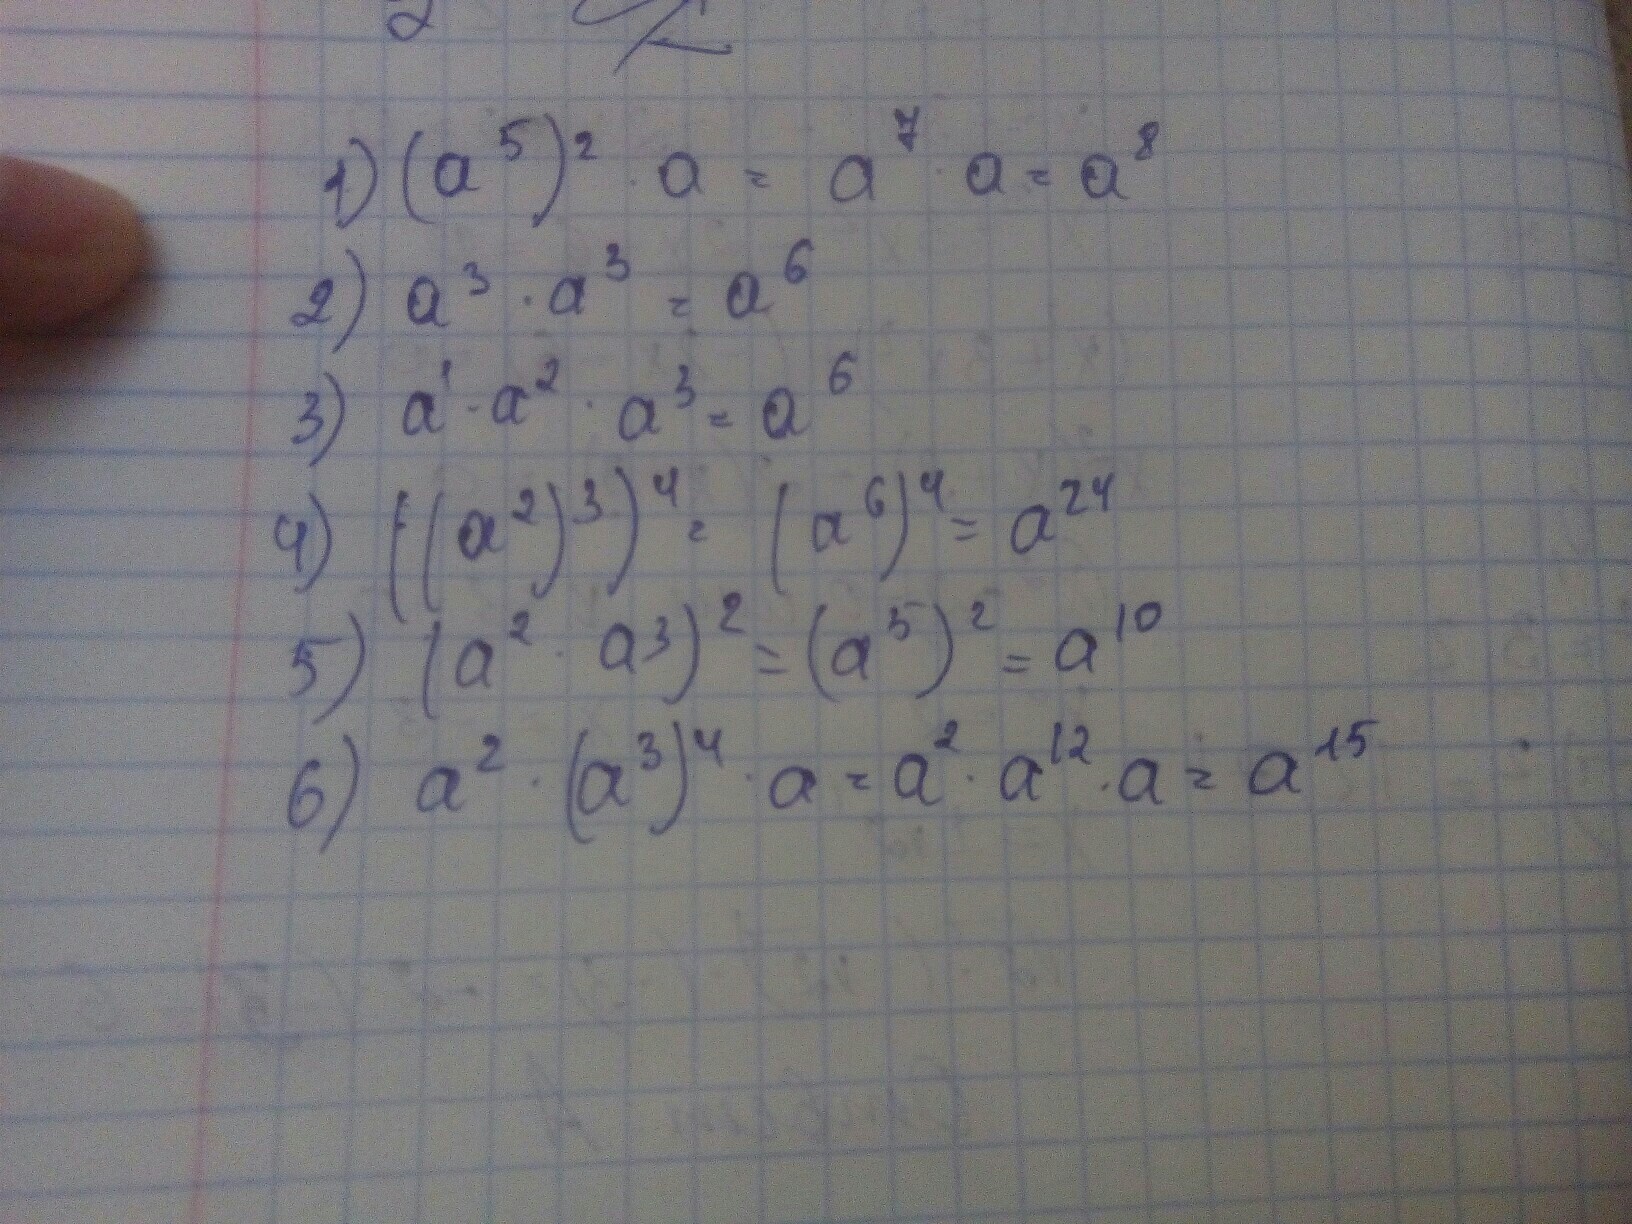 1) (a⁵)² · a = a⁷ · a = a⁸
2) a³ · a³ = a⁶
3) a¹ · a² · a³ = a⁶
4) ((a²)³)⁴ = (a⁶)⁴ = a²⁴
5) (a² · a³)² = (a⁵)² = a¹⁰
6) a² · (a³)⁴ · a = a² · a¹² · a = a¹⁵